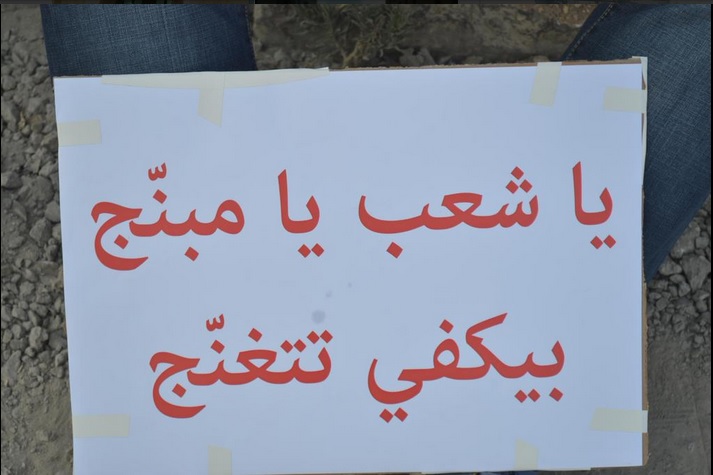 يا شعب يا مبنّج
بيكفي تتغنّج